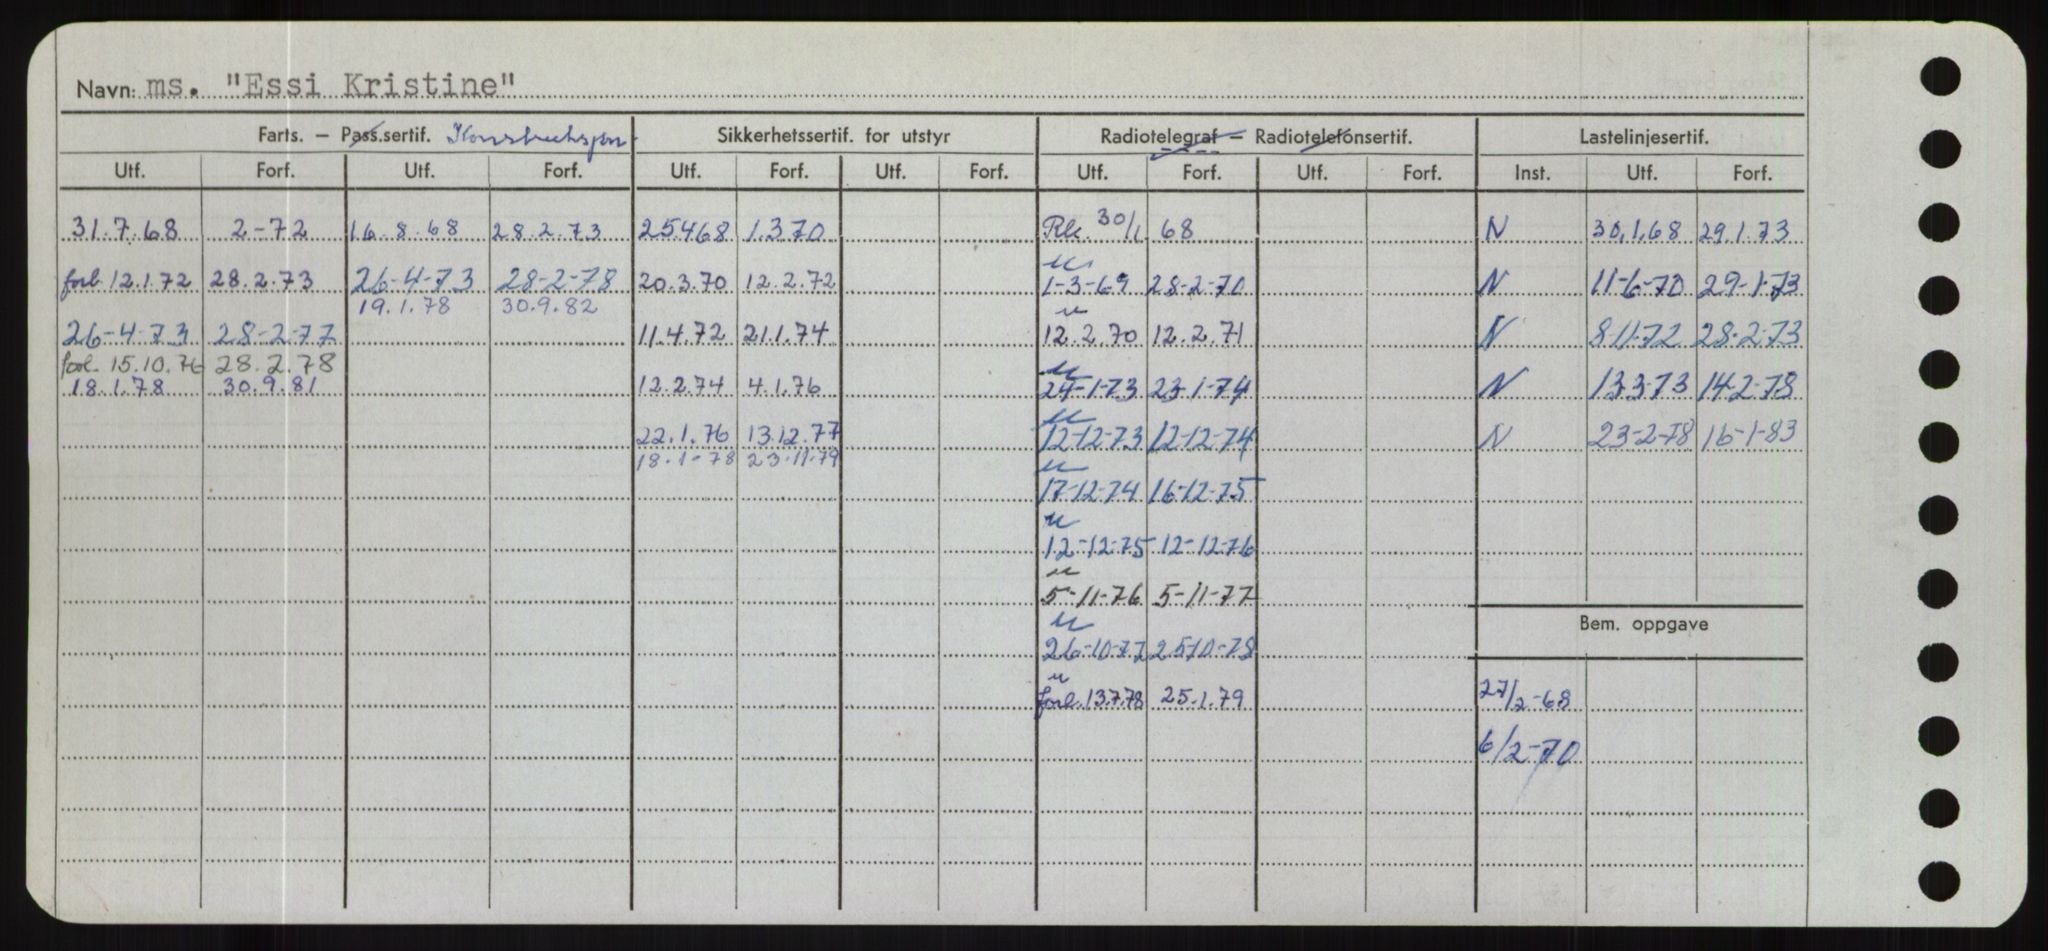 Navn: ms. "Essi Kristine"
Farts. – Pass.sertif. Konstruksjon Sikkerhetssertif. for utstyr Radiotelegraf – Radiotelefonsertif. Lastelinjesertif.
Utf. Forf. Utf. Forf. Utf. Forf. Utf. Forf. Utf. Forf. Utf. Forf. Inst. Utf. Forf.
31.7.68 2-72 16.8.68 28.2.73 25468 1.3.70 30/1 68 N 30.1.68 29.1.73
forl. 12.1.72 28.2.73 26-4-73 28-2-78 20.3.70 12.2.72 1-3-69 28-2-70 N 11-6-70 29-1-73
19.1.78 30.9.82
26-4-73 28-2-77 11.4.72 21.1.74 12.2.70 12.2.71 N 8-11-72 28-2-73
forl. 15.10.76 28.2.78
18.1.78 30.9.81 12.2.74 4.1.76 24-1-73 23-1-74 N 13-3-73 14-2-78
22.1.76 13.12.77 12-12-73 12-12-74 N 23-2-78 16-1-83
18.1-78 23.11.79
17-12-74 16-12-75
12-12-75 12-12-76
5-11-76 5-11-77
Bem. oppgave
26-10-77 25-10-78
forl. 13.7.78 25.1.79 27/2-68
6/2-70